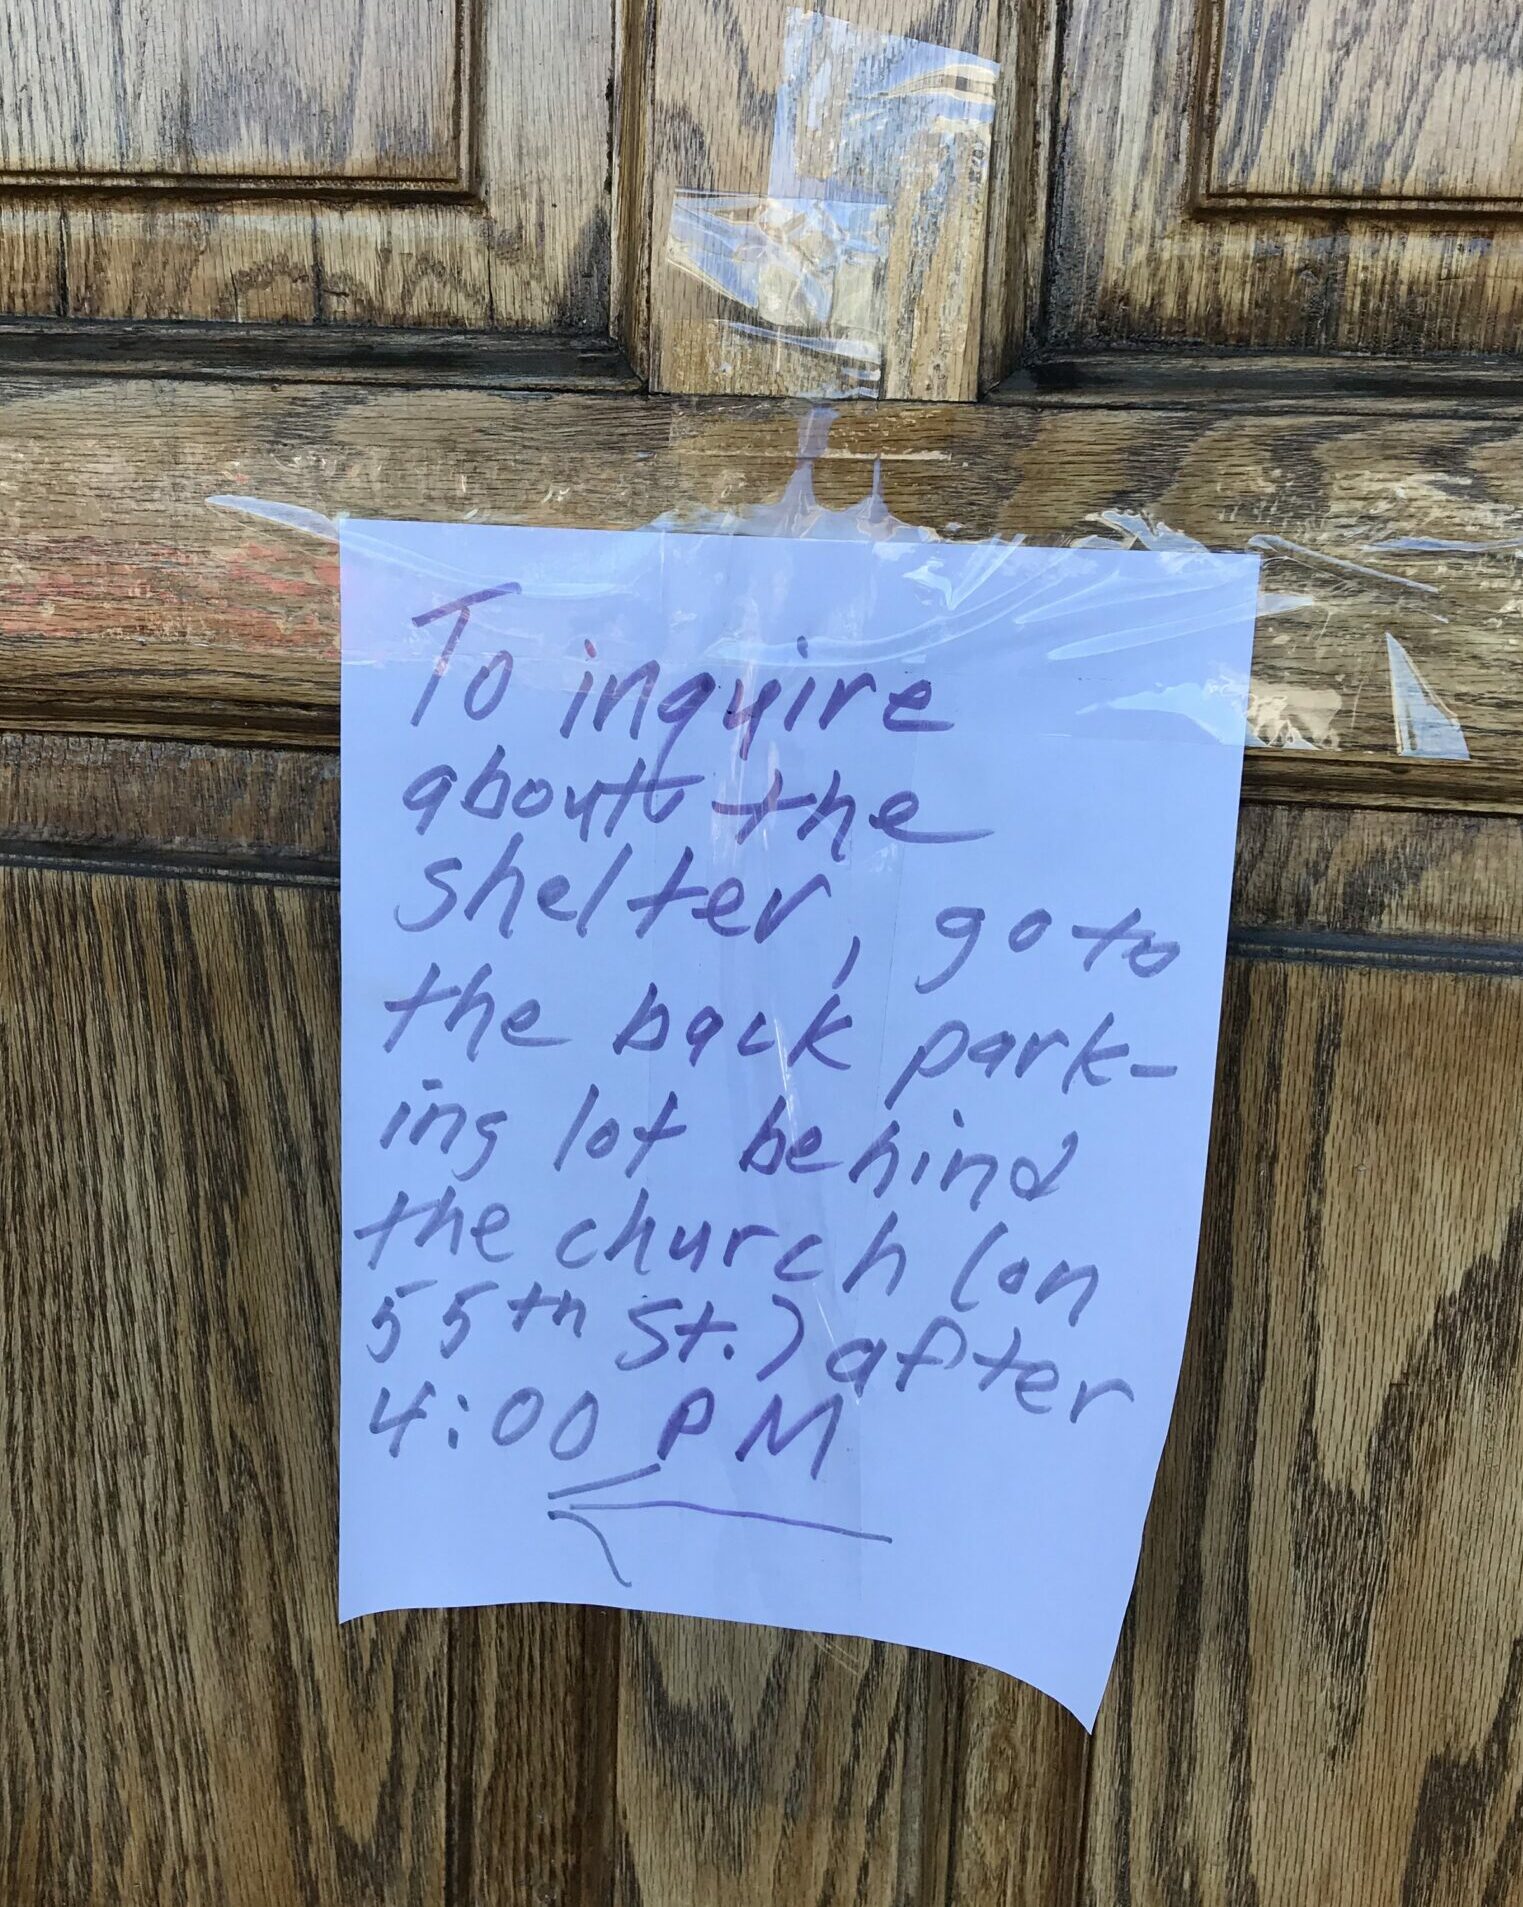 To inquire
about the
shelter, go to
the back park-
ing lot behind
the church (on
55th St.) after
4:00 PM